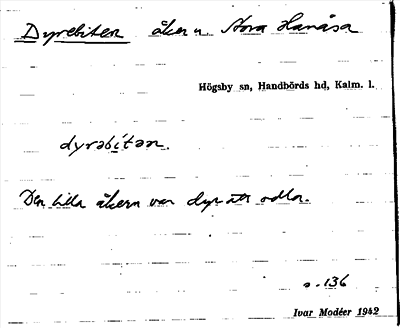 Dyrebiten åker u. Stora Hanåsa
Högsby sn, Handbörds hd, Kalm. l.
dyrəbítən.
Den lilla åkern var dyr att odla.
s. 136
Ivar Modéer 1942